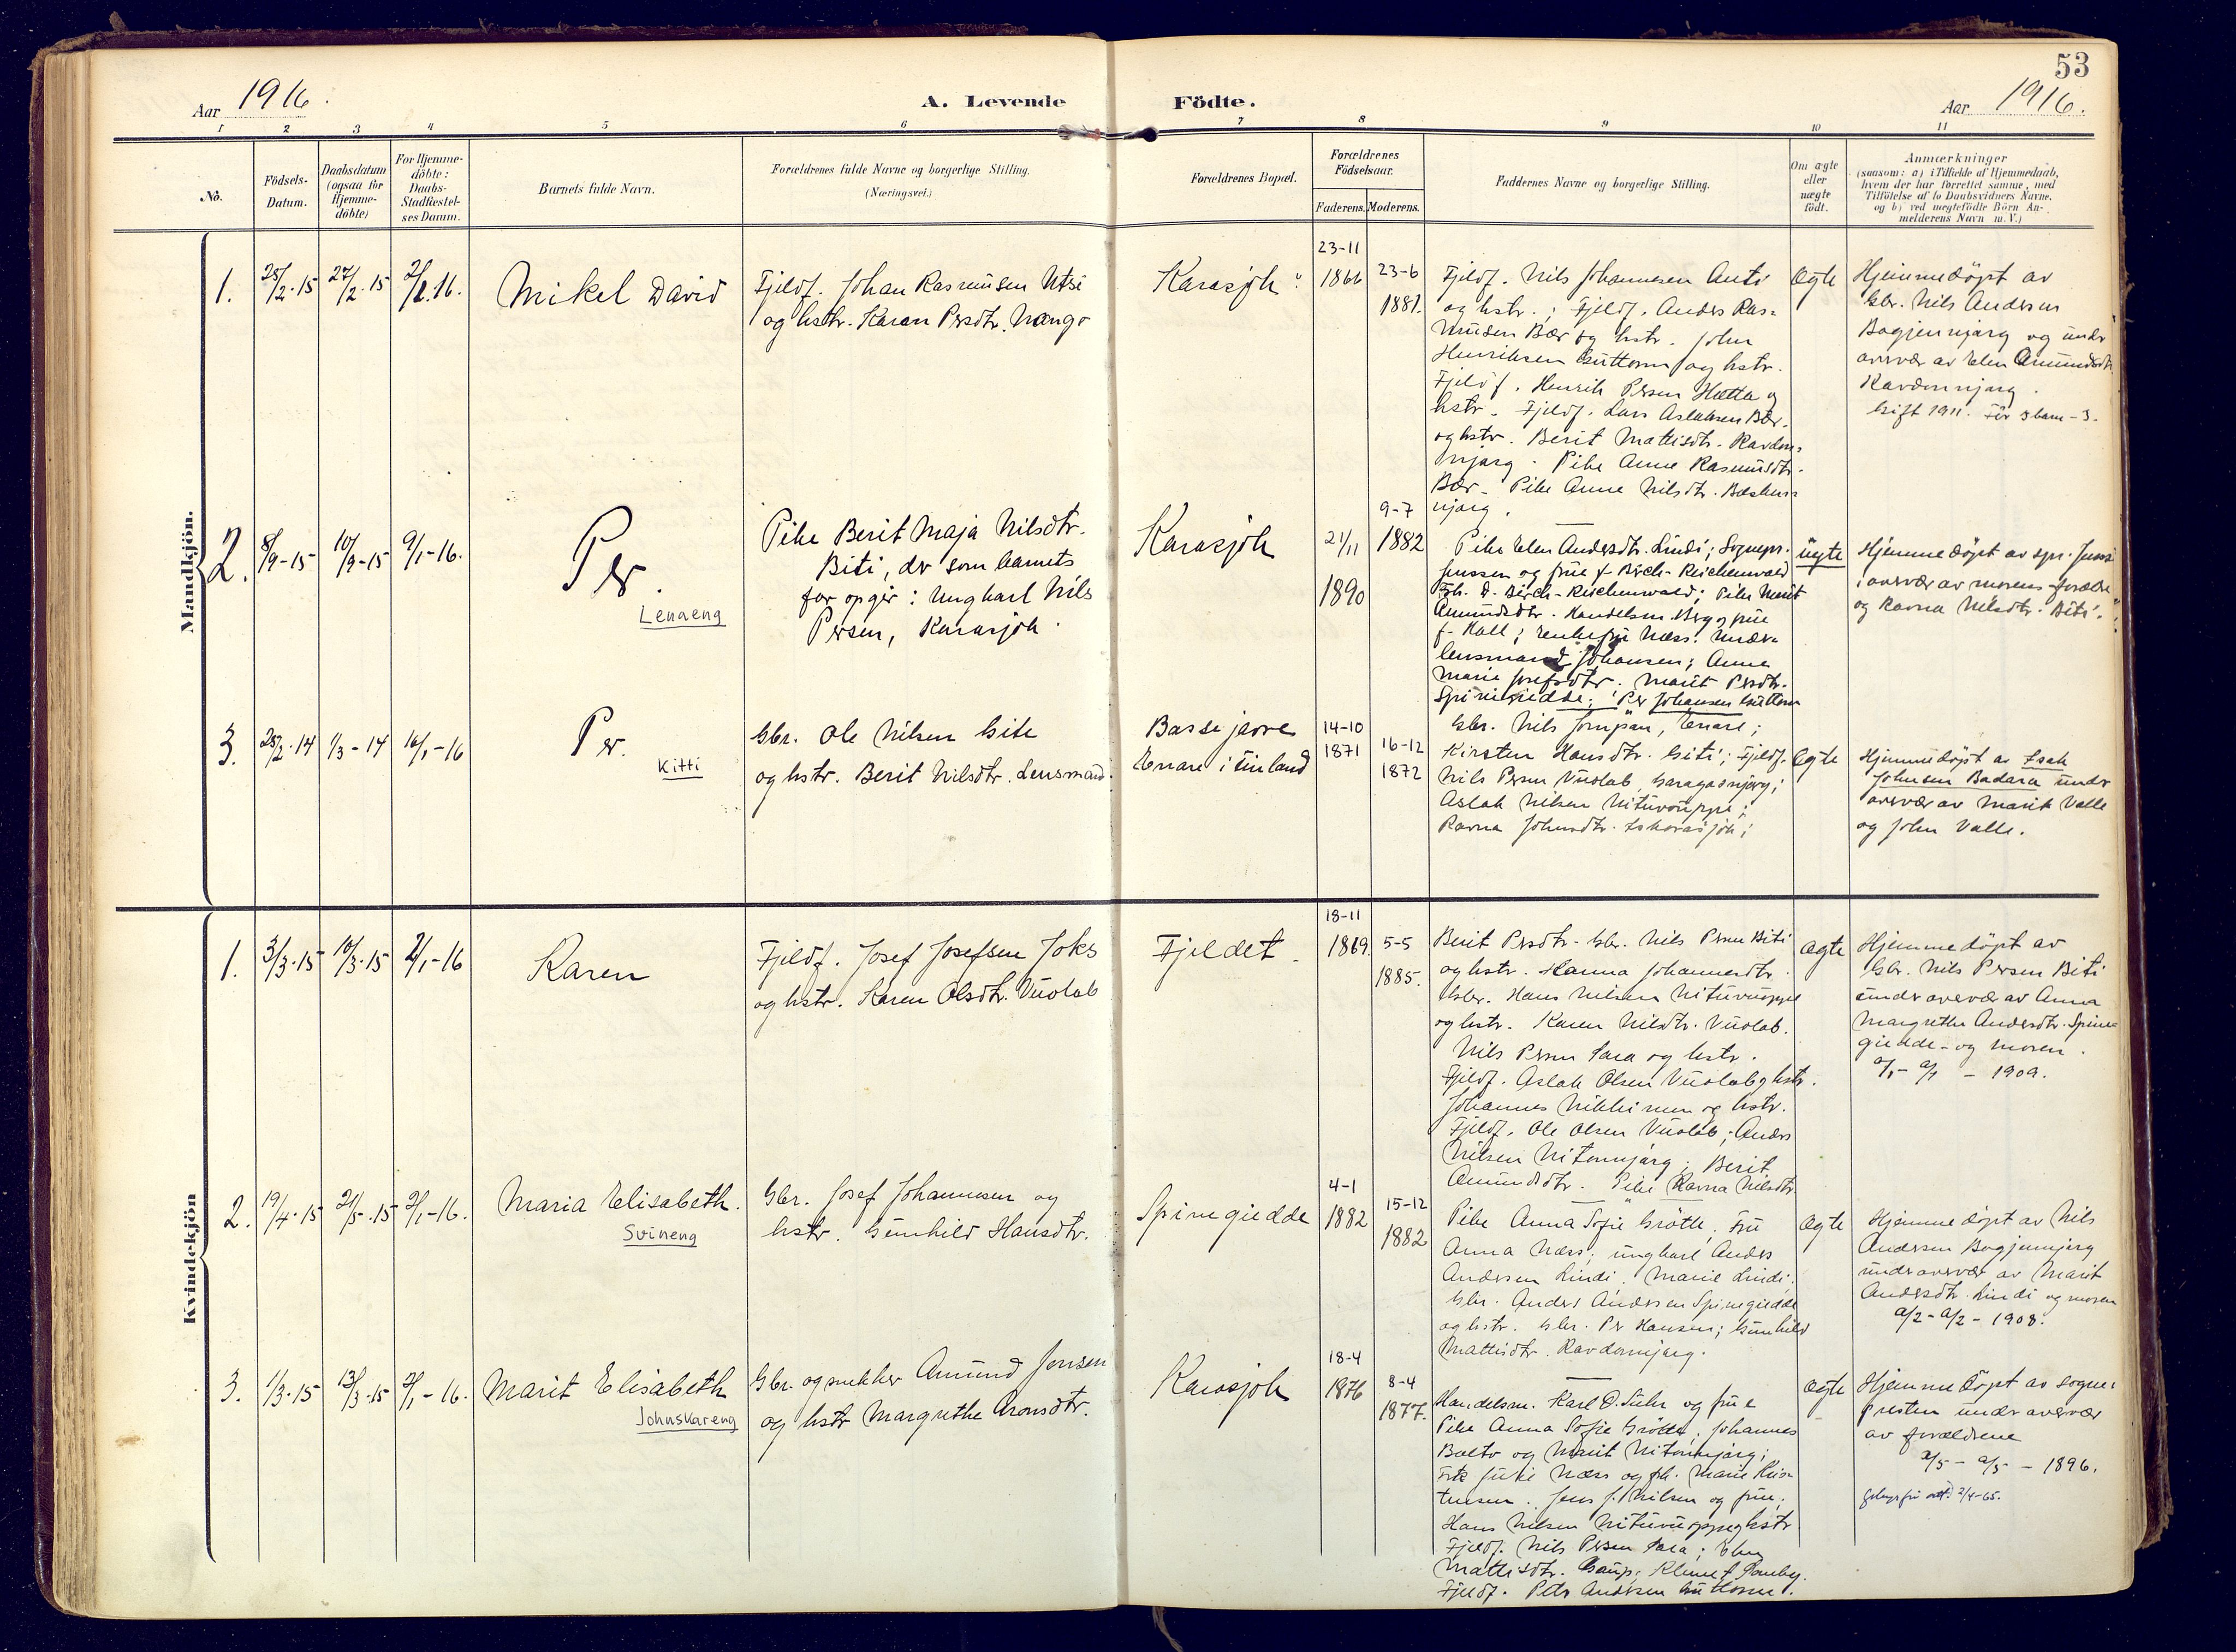 53
Aar 1916.
A. Levende Födte.
Aar 1916.
1 2 3 4 5 6 7 8 9 10 11
No.
Födsels-
Datum.
Daabsdatum
(ogsaa for
Hjemme-
döbte)
For Hjemme-
döbte:
Daabs-
Stadfæstel-
ses Datum.
Barnets fulde Navn.
Forældrenes fulde Navne og borgerlige Stilling.
(Næringsvei.)
Forældrenes Bopæl.
Forældrenes
Födselsaar.
Faderens. Moderens.
Faddernes Navne og borgerlige Stilling.
Om ægte
eller
uægte
födt.
Anmærkninger
(saasom: a) i Tilfælde af Hjemmedaab,
hvem der har forrettet samme, med
Tilföielse af to Daabsvidners Navne.
og b) ved uægtefödte Börn An-
melderens Navn m. V.)
Mandkjön.
1.
25/2.15
27/2.15
2/1.16.
Mikel David
Fjeldf. Johan Rasmusen Utsi
og hstr. Karen Persdtr. Nango
Karasjok
23-11
1866
23-6
1881.
Fjeldf. Nils Johannesen Anti
og hstr.; Fjeldf. Anders Ras-
musen Bær og hstr. John
Henriksen Guttorm og hstr.
Fjeldf. Henrik Persen Hætta og
hstr. Fjeldf. Lars Aslaksen Bær
og hstr. Berit Mattisdtr. Ravdon-
njarg. Pike Anne Rasmusdtr.
Bær. Pike Anne Nilsdtr.
njarg.
Ægte
Hjemmedöpt av
Gbr. Nils Andersen
Bogjennjarg og under
overvær av Elen Amundsdtr.
Ravdonnjarg.
Gift 1911. Før 3 barn - 3.
2.
8/9-15
10/9-15
9/1-16.
Per.
Lenaeng
Pike Berit Maja Nilsdtr.
Biti, der som barnets
far opgir: Ungkarl Nils
Persen, Karasjok.
Karasjok
21/11
1890
9-7
1882
Pike Elen Andersdtr. Lindi; Sognepr.
Jenssen og frue f. Birch-Reichenwald
Frk. D. Birch-Reichenwald; Pike Marit
Amundsdtr. Handelsm. Berg og frue
f. Hall; Enkefru Næss. Under-
lensmand Johansen; Anna
Marie Josefsdtr. Marit Persdtr.
Spinegiedde; Per Johansen Guttorm
uegte
Hjemmedöpt av spr. Jenssen
i overvær av morens forældre
og Ravna Nilsdtr. Biti.
3.
28/2.14
1/3-14
16/1-16
Per.
Kitti
Gbr. Ole Nilsen Giti
og hstr. Berit Nilsdtr. Lensmand.
Bassejavre
Enare i Finland
14-10
1871
16-12
1872
Gbr. Nils Jompan, Enare;
Kirsten Hansdtr. Giti; Fjeldf.
Nils Persen Vuolab, Garagasnjarg;
Aslak Nilsen Nituvuoppe;
Ravna Johnsdtr. Iskorasjok;
Ægte
Hjemmedöpt av Isak
Johnsen Badara under
overvær av Marit Valle
og John Valle.
Kvindekjön
1.
3/3.15
10/3.15
2/1-16
Karen
Fjeldf. Josef Josefsen Joks
og hstr. Karen Olsdtr. Vuolab
Fjeldet
18-11
1869.
5-5
1885.
Berit Persdtr. Gbr. Nils Persen Biti
og hstr. Hanna Johannesdtr.
Gbr. Hans Nilsen Nituvuoppe
og hstr. Karen Nilsdtr. Vuolab.
Nils Persen Sara og hstr.
Fjeldf. Aslak Olsen Vuolab og hstr.
Johannes Nikkinen og hstr.
Fjeldf. Ole Olsen Vuolab; Anders
Nilsen Nitonnjarg; Berit
Amundsdtr. Pike Ravna Nilsdtr.
Ægte
Hjemmedöpt av
Gbr. Nils Persen Biti
under overvær av Anna
Margrethe Andersdtr. Spine-
giedde og moren.
- 1909.
2.
19/4.15
21/5.15
2/1-16.
Maria Elisabeth.
Svineng
Gbr. Josef Johannesen og
hstr. Gunhild Hansdtr.
Spinegiedde
4-1
1882
15-12
1882
Pike Anna Sofie Grötte, Fru
Anna Næss; ungkarl Anders
Andersen Lindi. Marie Lindi.
Gbr. Anders Andersen Spinegiedde
og hstr. Gbr. Per Hansen; Gunhild
Mattisdtr. Ravdonnjarg.
Ægte
Hjemmedöpt av Nils
Andersen Bogjennjarg
under overvær av Marit
Andersdtr. Lindi og moren
a/2-a/2 - 1908.
3.
1/3.15
13/3.15
2/1-16.
Marit Elisabeth
Johnskareng
Gbr. og snekker Amund Jonsen
og hstr. Margrethe Aronsdtr.
Karasjok
18-4
1876
8-4
1877.
Handelsm. Karl O. Suhr og frue
Pike Anna Sofie Grötte, Johannes
Balto og Marit Nitonnjarg;
Næss og frk. Marie Kris-
tensen. Jens J. Nilsen og frue;
Hans Nilsen Nituvuoppe og hstr.
Fjeldf. Nils Persen Sara; Elen
Mattisdtr. Gaup;
Fjeldf. Peder Andersen Guttorm.
Ægte
Hjemmedöpt av sogne-
presten under overvær
av forældrene
a/5 - a/5 - 1896.
2/4-65.